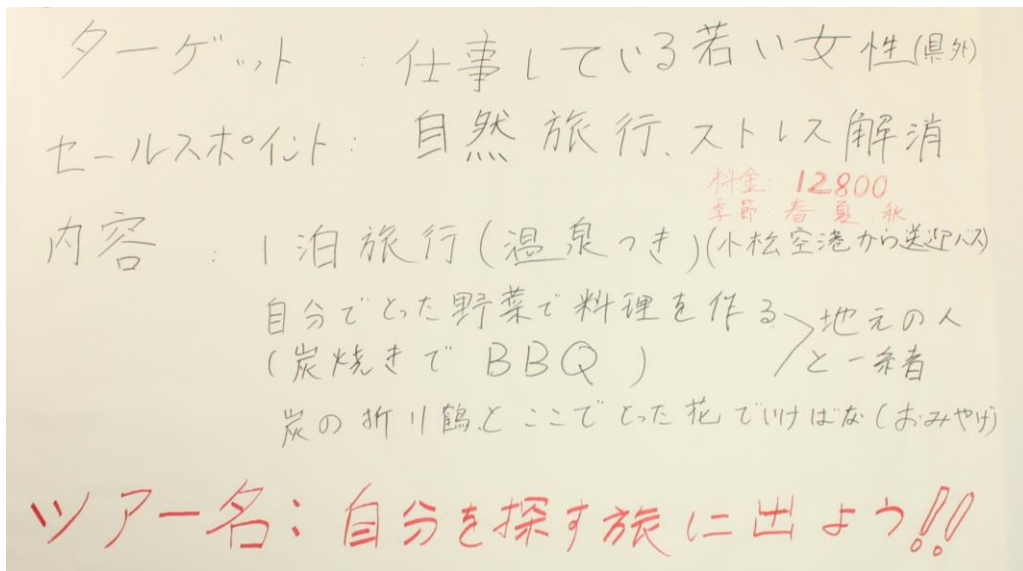 ターゲット : 仕事している若い女性(県外)
セールスポイント: 自然旅行、ストレス解消
料金: 12800
季節:春 夏 秋
内容 : 1泊旅行(温泉つき)(小松空港から送迎バス)
自分でとった野菜で料理を作る
(炭焼きでBBQ)
地元の人
と一緒
炭の折り鶴とここでとった花でいけばな(おみやげ)
ツアー名:自分を探す旅に出よう!!